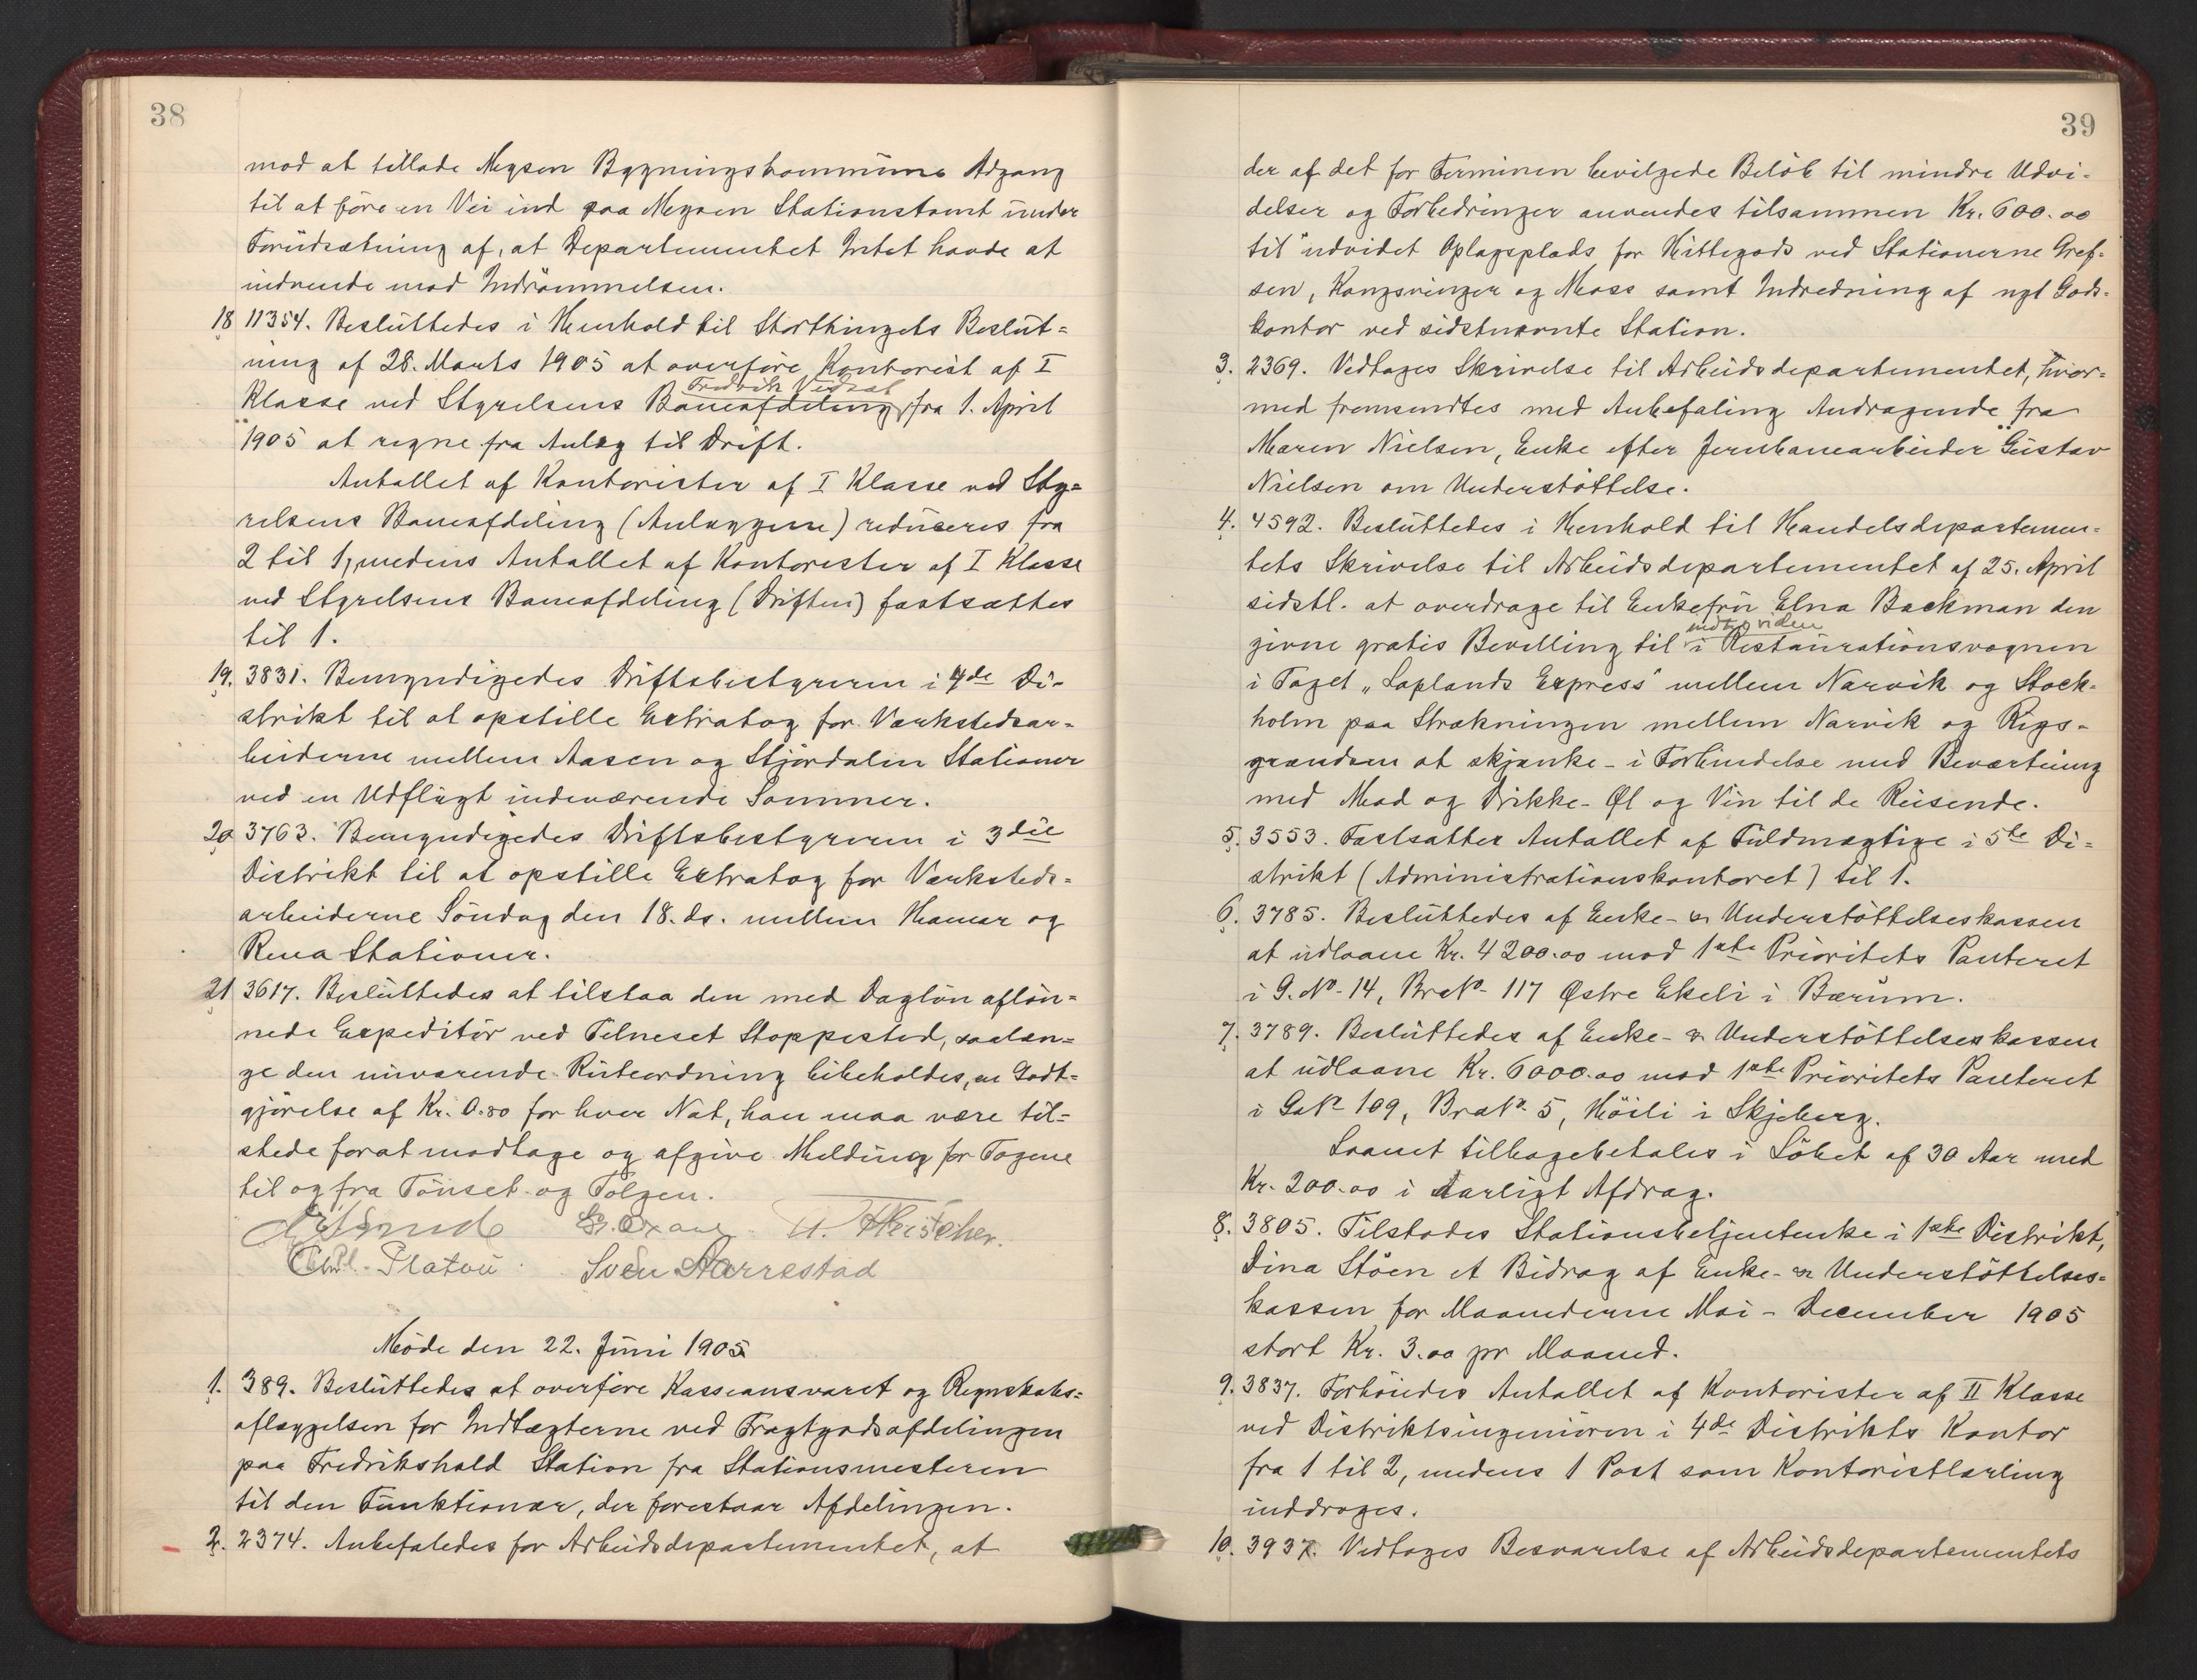 38
mod at tillade Mysen Bygningskommune Adgang
til at føre en Vei ind paa Mysen Stationstomt under
Forudsætning af, at Departementet Intet havde at
indvende mod Indrømmelsen.
18 11354. Besluttedes i Henhold til Storthingets Beslut=
ning af 28. Marts 1905 at overføre Kontorist af I
Klasse ved Styrelsens Baneafdeling, Fredrik fra 1. April
1905 at regne fra Anlæg til Drift.
Antallet af Kontorister af I Klasse ved Sty=
relsens Baneafdeling (Anlæggene) reduceres fra
2 til 1, medens Antallet af Kontorister af I Klasse
ved Styrelsens Baneafdeling (Driften) fastsættes
til 1.
19. 3831. Bemyndigedes Driftsbestyreren i 4de Di-
strikt til at opstille Extratog for Værkstedsar=
beiderne mellem Aasen og Stjørdalen Stationer
ved en Udflugt indeværende Sommer.
20 3763. Bemyndigedes Driftsbestyreren i 3die
Distrikt til at opstille Extratog for Værksteds=
arbeiderne Søndag den 18. ds. mellem Hamar og
Rena Stationer.
21 3617. Besluttedes at tilstaa den med Dagløn afløn=
nede Expeditør ved Telneset Stoppested, saalæn=
ge den nuværende Ruteordning bibeholdes, en Godt=
gjørelse af Kr. 0.80 for hver Nat, han maa være til=
stede forat modtage og afgive Melding for Togene
til og fra Tønset og Tolgen.
Chr. Platou Sven Aarrestad
Møde den 22. Juni 1905
1. 389. Besluttedes at overføre Kasseansvaret og Regnskabs=
aflæggelsen for Indtægterne ved Fragtgodsafdelingen
paa Fredrikshald Station fra Stationsmesteren
til den Funktionær, der forestaar Afdelingen.
2. 2374. Anbefaledes for Arbeidsdepartementet, at
39
der af det for Terminen bevilgede Beløb til mindre Udvi-
delser og Forbedringer anvendes tilsammen Kr. 600.00
til udvidet Oplagsplads for Hittegods ved Stationerne Gref=
sen, Kongsvinger og Moss samt Indredning af nyt Gods=
kontor ved sidstnævnte Station.
3. 2369. Vedtoges Skrivelse til Arbeidsdepartementet, hvor=
med fremsendtes med Anbefaling Andragende fra
Maren Nielsen, Enke efter Jernbanearbeider Gustav
Nielsen om Understøttelse.
4. 4592. Besluttedes i Henhold til Handelsdepartemen=
tets Skrivelse til Arbeidsdepartementet af 25. April
sidstl. at overdrage til Enkefru Elna Backman den
givne gratis Bevilling til indtil videre i Restaurationsvognen
i Toget „Laplands Express" mellem Narvik og Stock-
holm paa Strækningen mellem Narvik og Rigs-
grændsen at skjænke - i Forbindelse med Beværtning
med Mad og Drikke - Øl og Vin til de Reisende.
5. 3553. Fastsattes Antallet af Fuldmægtige i 5te Di=
strikt (Administrationskontoret) til 1.
6. 3785. Besluttedes af Enke- & Understøttelseskassen
at udlaane Kr. 4200.00 mod 1ste Prioritets Panteret
i G. No. 14, Br.No. 117 Østre Ekeli i Bærum.
7. 3789. Besluttedes af Enke- & Understøttelseskassen
at udlaane Kr. 6000.00 mod 1ste Prioritets Panteret
i G.No 109, Br.No. 5, Høili i Skjeberg.
Laanet tilbagebetales i Løbet af 30 Aar med
Kr. 200.00 i aarligt Afdrag.
8. 3805. Tilstodes Stationsbetjentenke i 1ste Distrikt,
Dina Støen et Bidrag af Enke- & Understøttelses=
kassen for Maanederne Mai - December 1905
stort Kr. 3.00 pr Maaned.
9. 3837. Forhøiedes Antallet af Kontorister af II Klasse
ved Distriktsingeniøren i 4de Distrikts Kontor
fra 1 til 2, medens 1 Post som Kontoristlærling
inddroges.
10. 3937. Vedtoges Besvarelse af Arbeidsdepartementets